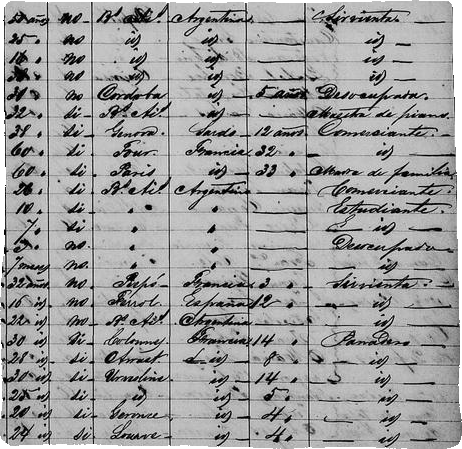 50 años no Bs As Argentina — Sirvienta
25 " no id id — id
16 " no id id — id
no id id — id
no Cordoba id 5 años Desocupada
32 " si Bs As id — Maestra de piano
38 " si Genova Sardo 12 años Comerciante
60 " si Tour Francia 32 " id
60 " si Paris id 33 " Madre de familia
26 " si Bs As Argentina — Comerciante
10 " si " " — Estudiante
7 " si " " — id
no " " — Desocupada
7 meses no " " — id
22 años no Francia 3 " Sirvienta
16 id no Ferrol España 12 " id
no Bs As Argentina — id
30 id si Francia 14 " Panadero
28 id si id 8 " id
30 id si id 14 " id
25 id si id id 5 " id
20 id si id 4 " id
24 id si id 4 " id